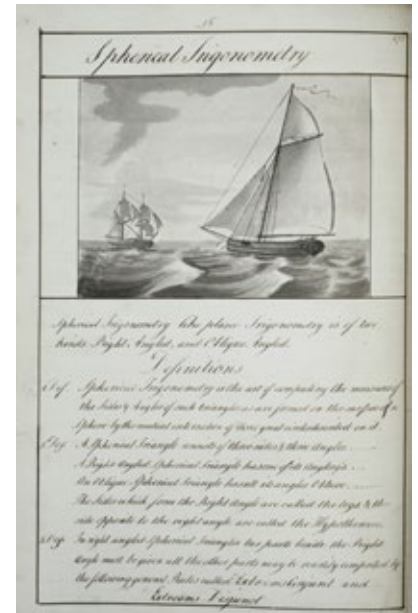 16
Spherical Trigonometry
Spherical Trigonometry like plane Trigonometry is of two
kinds Right Angled, and Oblique Angled.
Definitions
1 Def. Spherical Trigonometry is the art of computing the measures of
the Sides & Angles of such triangles as are formed on the surface of a
Sphere by the mutual intersection of three great circles described on it.
2 Def. A Spherical Triangle consists of three sides & three angles
A Right Angled Spherical Triangle has one of its Angles
An Oblique Spherical Triangle has all its angles Oblique
The Sides which form the Right Angle are called the legs & the
side opposite to the right angle are called the Hypothenuse
3 Def. In right angled Spherical Triangles two parts beside the Right
Angle must be given all the other parts may be readily computed by
the following general Rules called Extremes Conjunct and
Extremes Disjunct